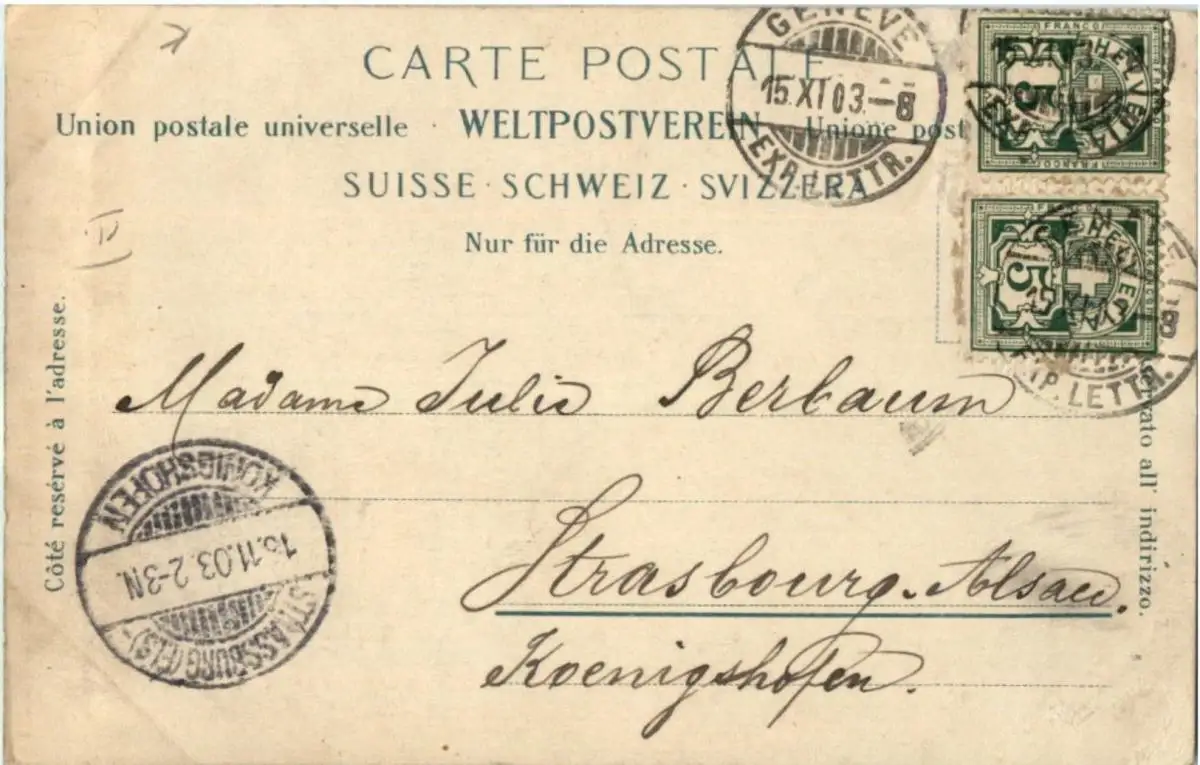 CARTE POSTALE
Union postale universelle · WELTPOSTVEREIN · Unione post
SUISSE · SCHWEIZ · SVIZZERA
Nur für die Adresse.
GENÈVE
15.XI.03.-8
EXP. LETTR.
FRANCO
HELVETIA
5
FRANCO
FRANCO
HELVETIA
5
8
EXP. LETTR.
Côté reservé à l'adresse.
all' indirizzo.
Madame Julie Berbaum
Strasbourg. Alsace.
Koenigshofen.
KÖNIGSHOFEN
16.11.03. 2-3N.
STRASSBURG (ELS)